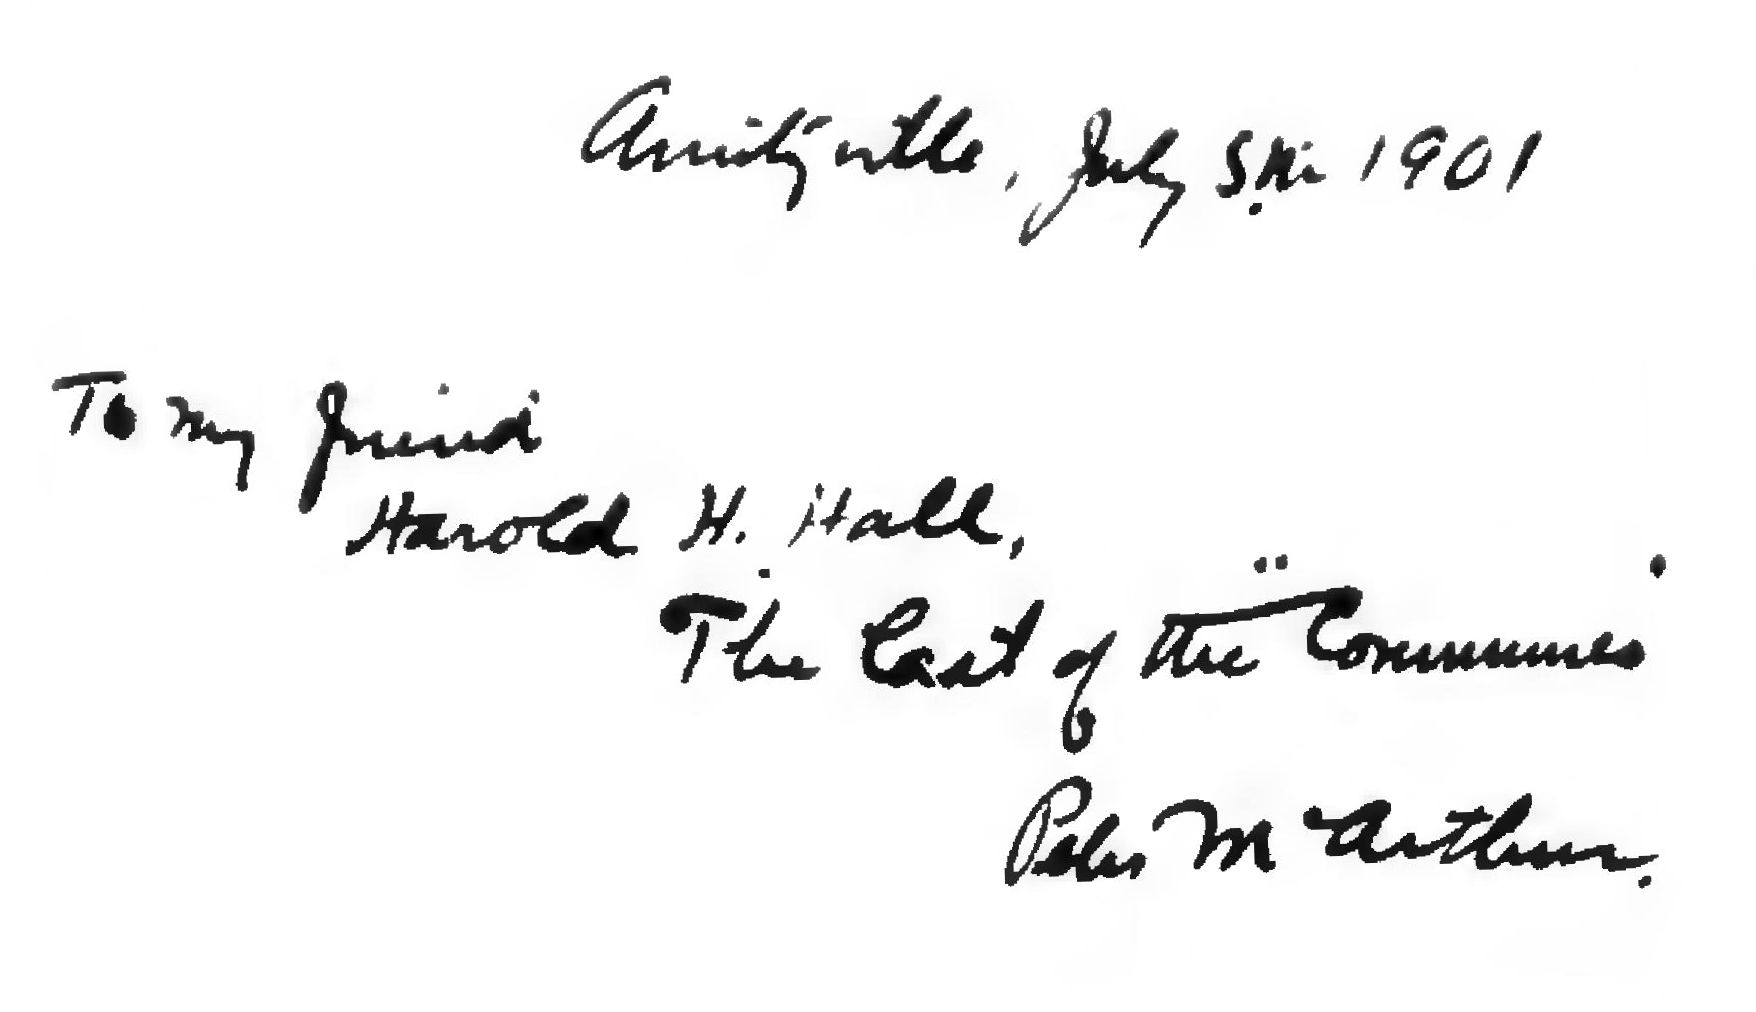 Amityville, July 5th 1901
To my friend
Harold H. Hall,
The last of the "Communes"
Peter McArthur.